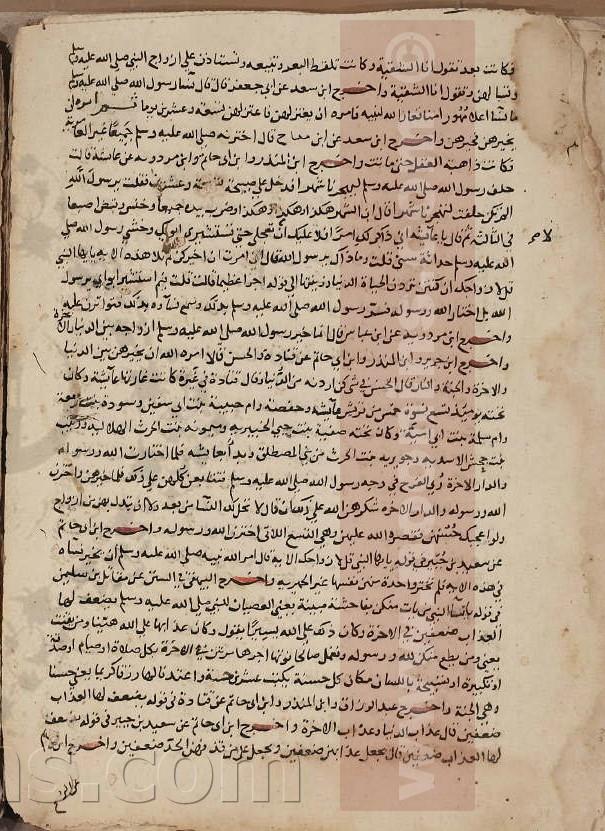 فكانت بعد تقول انا الشقية وكانت تلقط البعر وتبيعه وتستاذن على ازواج النبي صلى الله عليه وسلم
وتسالهن وتقول انا الشقية واخرج ابن سعد عن ابي جعفر قال قال نساء رسول الله صلى الله عليه وسلم
ما نساء اغلا مهورا منا فغار الله لنبيه فامره ان يعتزلهن فاعتزلهن تسعة وعشرين يوما ثم امره ان
يخيرهن فخيرهن واخرج ابن سعد عن ابن مناح قال اخترنه صلى الله عليه وسلم جميعا غير العامرية
فكانت ذاهبة العقل حتى ماتت واخرج ابن المنذر وابن ابي حاتم وابن مردويه عن عائشة قالت
حلف رسول الله صلى الله عليه وسلم ليهجرنا شهرا فدخل علي صبيحة تسعة وعشرين فقلت يرسول الله
الم تكن حلفت لتهجرنا شهرا قال ان الشهر هكذا وهكذا وهكذا وضرب بيده جميعا وخنس وقبض اصبعا
في الثالثة ثم قال يا عائشة اني ذاكر لك امرا فلا عليك ان تعجلي حتى تستشيري ابويك وخشي رسول الله صلى
الله عليه وسلم حداثة سني قلت وما ذاك يرسول الله قال اني امرت ان اخيركن ثم تلا هذه الاية يايها النبي
قل لازواجك ان كنتن تردن الحياة الدنيا وزينتها الى قوله اجرا عظيما قالت قلت فيم استشير ابوي يرسول
الله بل اختار الله ورسوله فسر رسول الله صلى الله عليه وسلم بذلك وسمع نساؤه بذلك فتواترن عليه
واخرج ابن مردويه عن ابن عباس قال انما خير رسول الله صلى الله عليه وسلم ازواجه بين الدنيا والاخرة
واخرج ابن جرير وابن المنذر وابن ابي حاتم عن قتادة والحسن قالا امره الله ان يخيرهن بين الدنيا
والاخرة والجنة والنار قال الحسن في شيء كن اردنه من الدنيا وقال قتادة في غيرة كانت غارتها عائشة وكان
تحته يومئذ تسع نسوة خمس من قريش عائشة وحفصة وام حبيبة بنت ابي سفين وسودة بنت زمعة
وام سلمة بنت ابي امية وكان تحته صفية بنت حيي الخيبرية وميمونة بنت الحرث الهلالية وزينب
بنت جحش الاسدية وجويرية بنت الحرث من بني المصطلق وبدا بعائشة فلما اختارت الله ورسوله
والدار الاخرة رؤي الفرح في وجه رسول الله صلى الله عليه وسلم فتتابعن كلهن على ذلك فلما خيرهن واخترن
الله ورسوله والدار الاخرة شكرهن الله على ذلك ان قال لا تحل لك النساء من بعد ولا ان تبدل بهن من ازواج
ولو اعجبك حسنهن فقصره الله عليهن وهي التسع اللاتي اخترن الله ورسوله واخرج ابن ابي حاتم
عن سعيد بن جبير في قوله يايها النبي قل لازواجك الاية قال امر الله نبيه صلى الله عليه وسلم ان يخير نساه
في هذه الاية فلم تختر واحدة منهن نفسها غير الحميرية واخرج البيهقي في السنن عن مقاتل بن سليمن
في قوله يا نساء النبي من يات منكن بفاحشة مبينة يعني العصيان للنبي صلى الله عليه وسلم يضعف لها
العذاب ضعفين في الاخرة وكان ذلك على الله يسيرا يقول وكان عذابها على الله هينا ومن يقنت
يعني ومن يطع منكن لله ورسوله وتعمل صالحا نوتها اجرها مرتين في الاخرة بكل صلاة او صيام او صدقة
او تكبيرة او تسبيحة باللسان مكان كل حسنة يكتب عشرين حسنة واعتدنا لها رزقا كريما يعني حسنا
وهي الجنة واخرج عبد الرزاق وابن المنذر وابن ابي حاتم عن قتادة في قوله يضعف لها العذاب
ضعفين قال عذاب الدنيا وعذاب الاخرة واخرج ابن ابي حاتم عن سعيد بن جبير في قوله يضعف
لها العذاب ضعفين قال يجعل عذابهن ضعفين ويجعل على من قذفهن الحد ضعفين واخرج ابن ابي